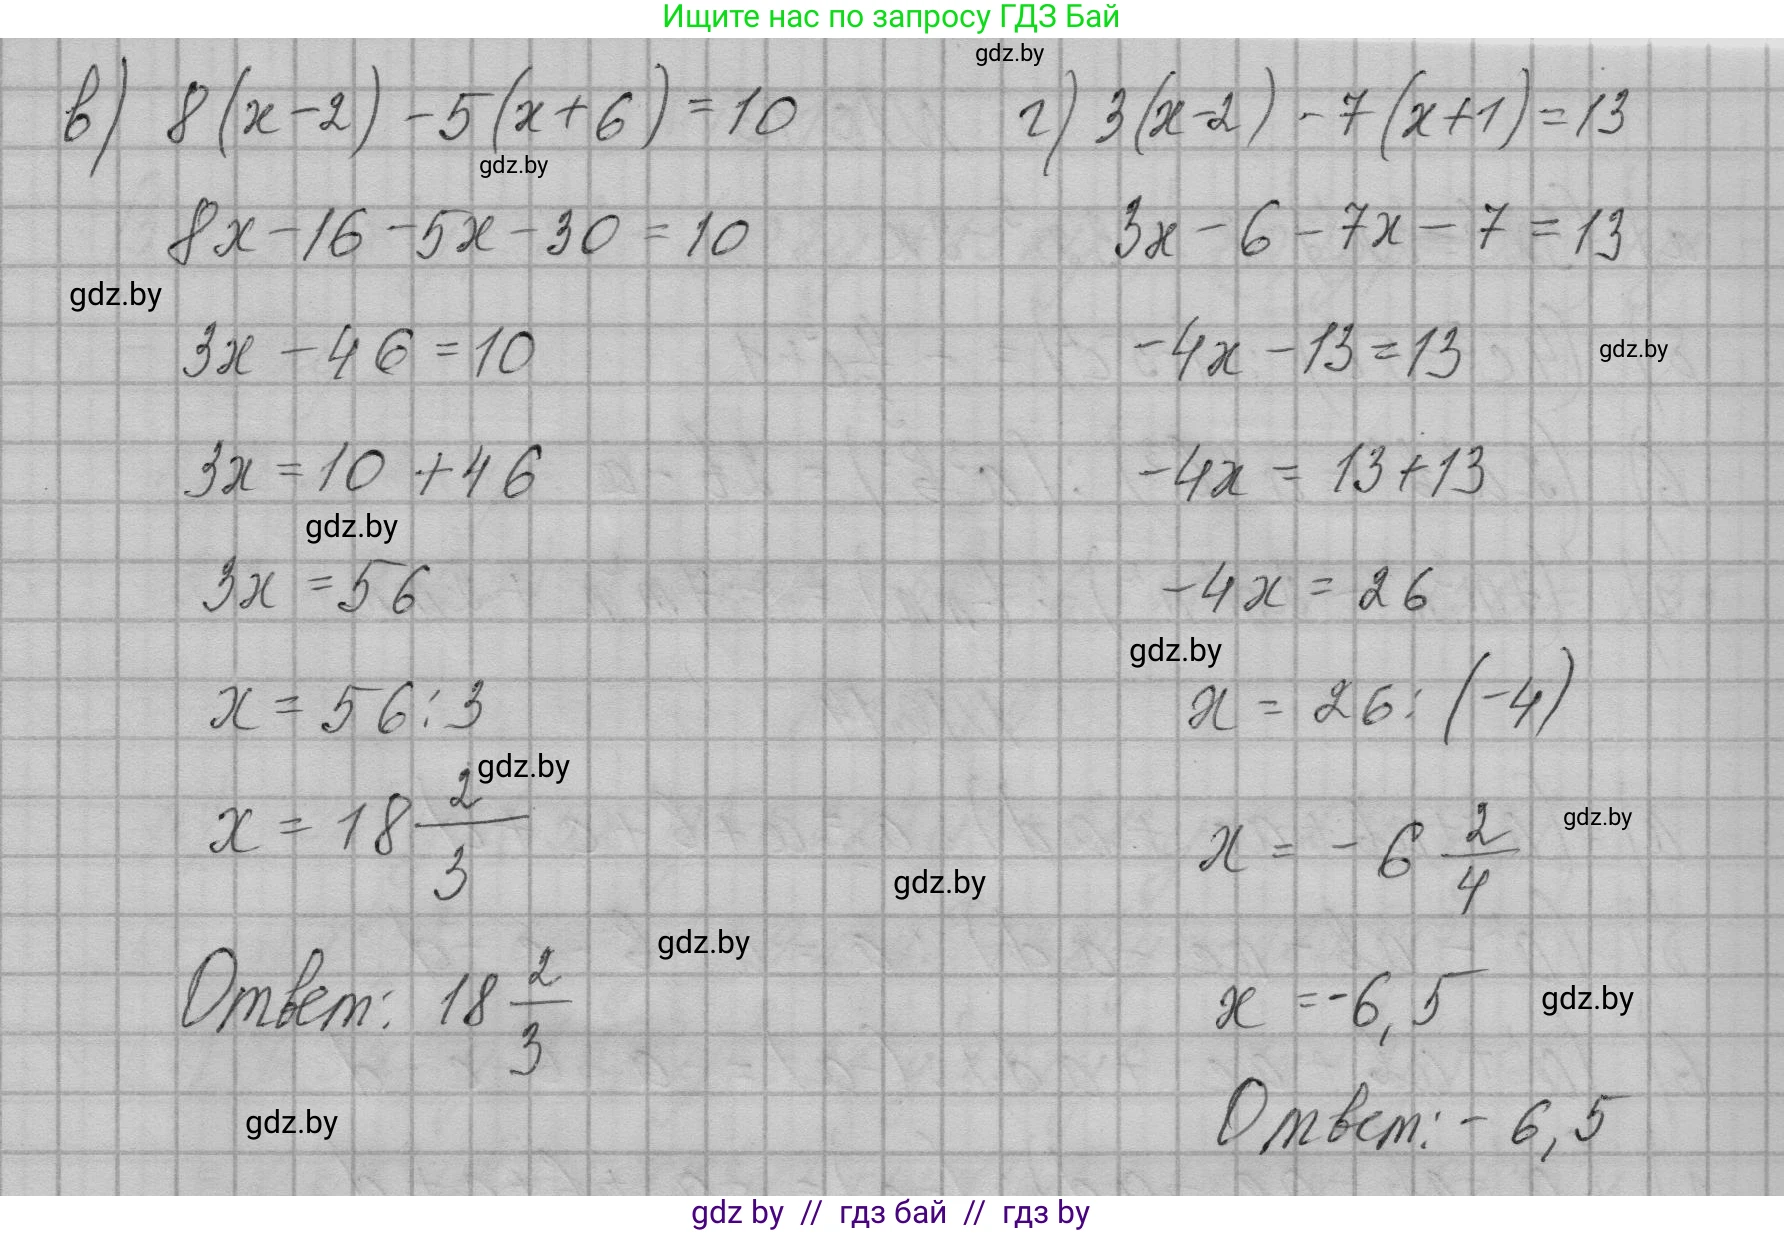 Ищите нас по запросу ГДЗ Бай
gdz.by
в) 8(x-2) -5(x+6)=10
gdz.by
8x-16-5x-30=10
gdz.by
3x-46=10
3x=10+46
gdz.by
3x=56
x=56:3
gdz.by
x=18 2/3
Ответ: 18 2/3
gdz.by
г) 3(x-2) -7(x+1)=13
3x-6-7x-7=13
-4x-13=13
gdz.by
-4x=13+13
-4x=26
gdz.by
x=26:(-4)
x=-6 2/4
gdz.by
gdz.by
gdz.by
x=-6,5
gdz.by
Ответ: -6,5
gdz by // гдз бай // гдз by